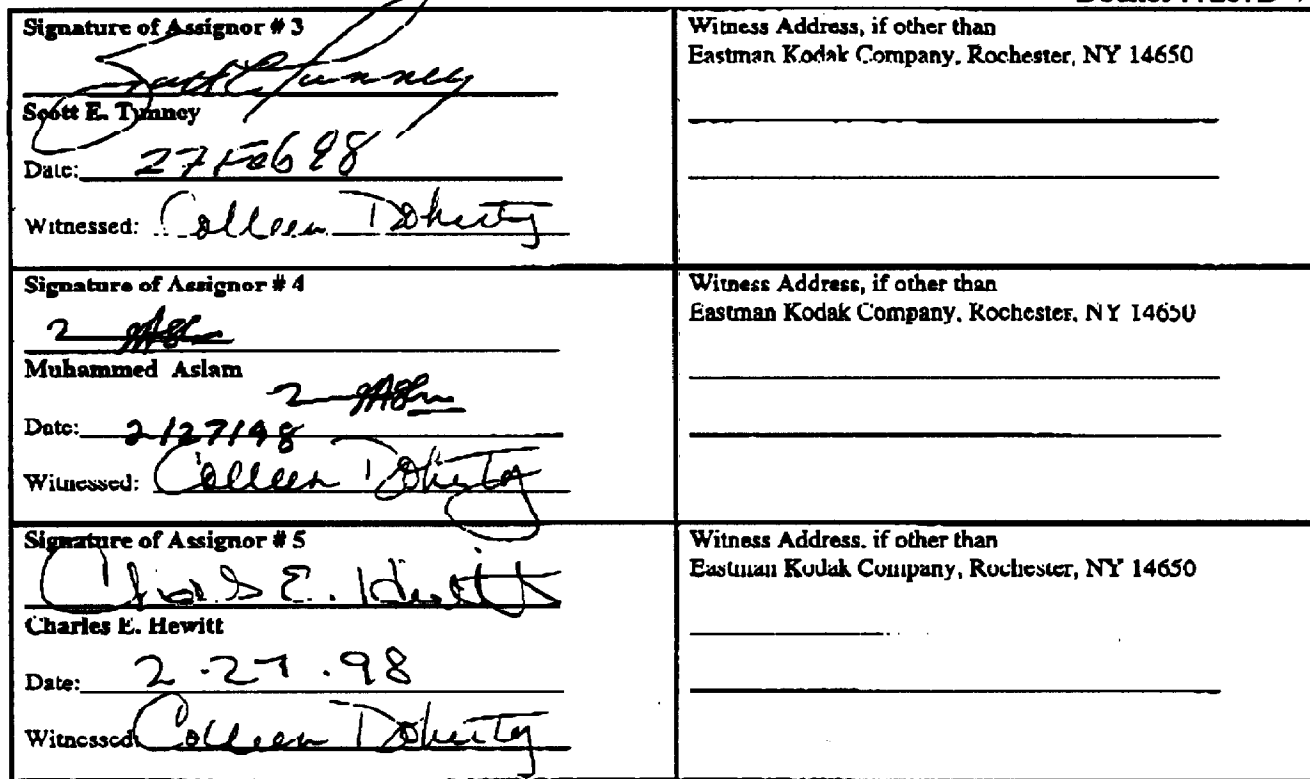 Signature of Assignor # 3
Scott E. Tunney
Scott E. Tunney
Date: 27 Feb 98
Witnessed: Colleen Doherty
Witness Address, if other than
Eastman Kodak Company, Rochester, NY 14650
Signature of Assignor # 4
Muhammed Aslam
Date: 2/27/98
Witnessed: Colleen Doherty
Witness Address, if other than
Eastman Kodak Company, Rochester, NY 14650
Signature of Assignor # 5
Charles E. Hewitt
Charles E. Hewitt
Date: 2.27.98
Witnessed: Colleen Doherty
Witness Address, if other than
Eastman Kodak Company, Rochester, NY 14650